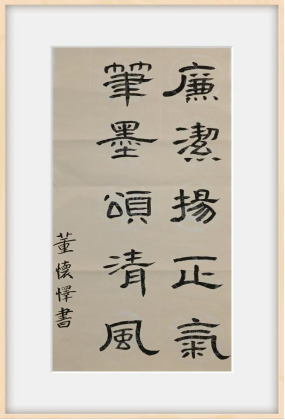 廉潔揚正氣
筆墨頌清風
董懷懌書